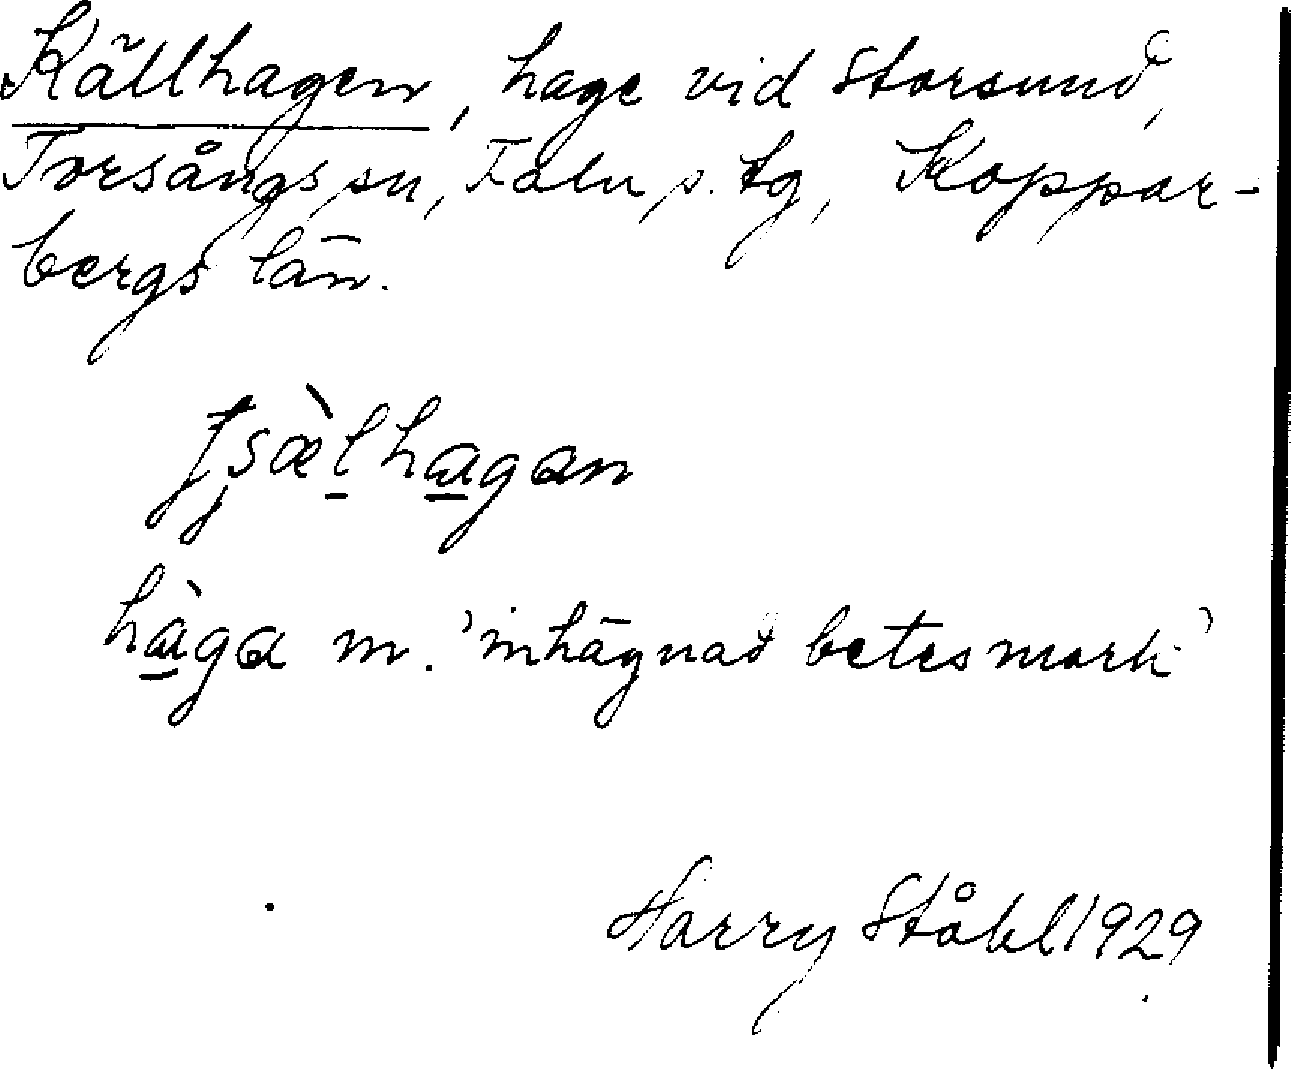 Källhagen, hage vid Storsund,
Torsångs sn, Falu s. tg, Koppar-
bergs län.
ʈʂæ̀l̲ha̲gan
hà̲ga m. 'inhägnad betesmark'
Harry Ståhl 1929